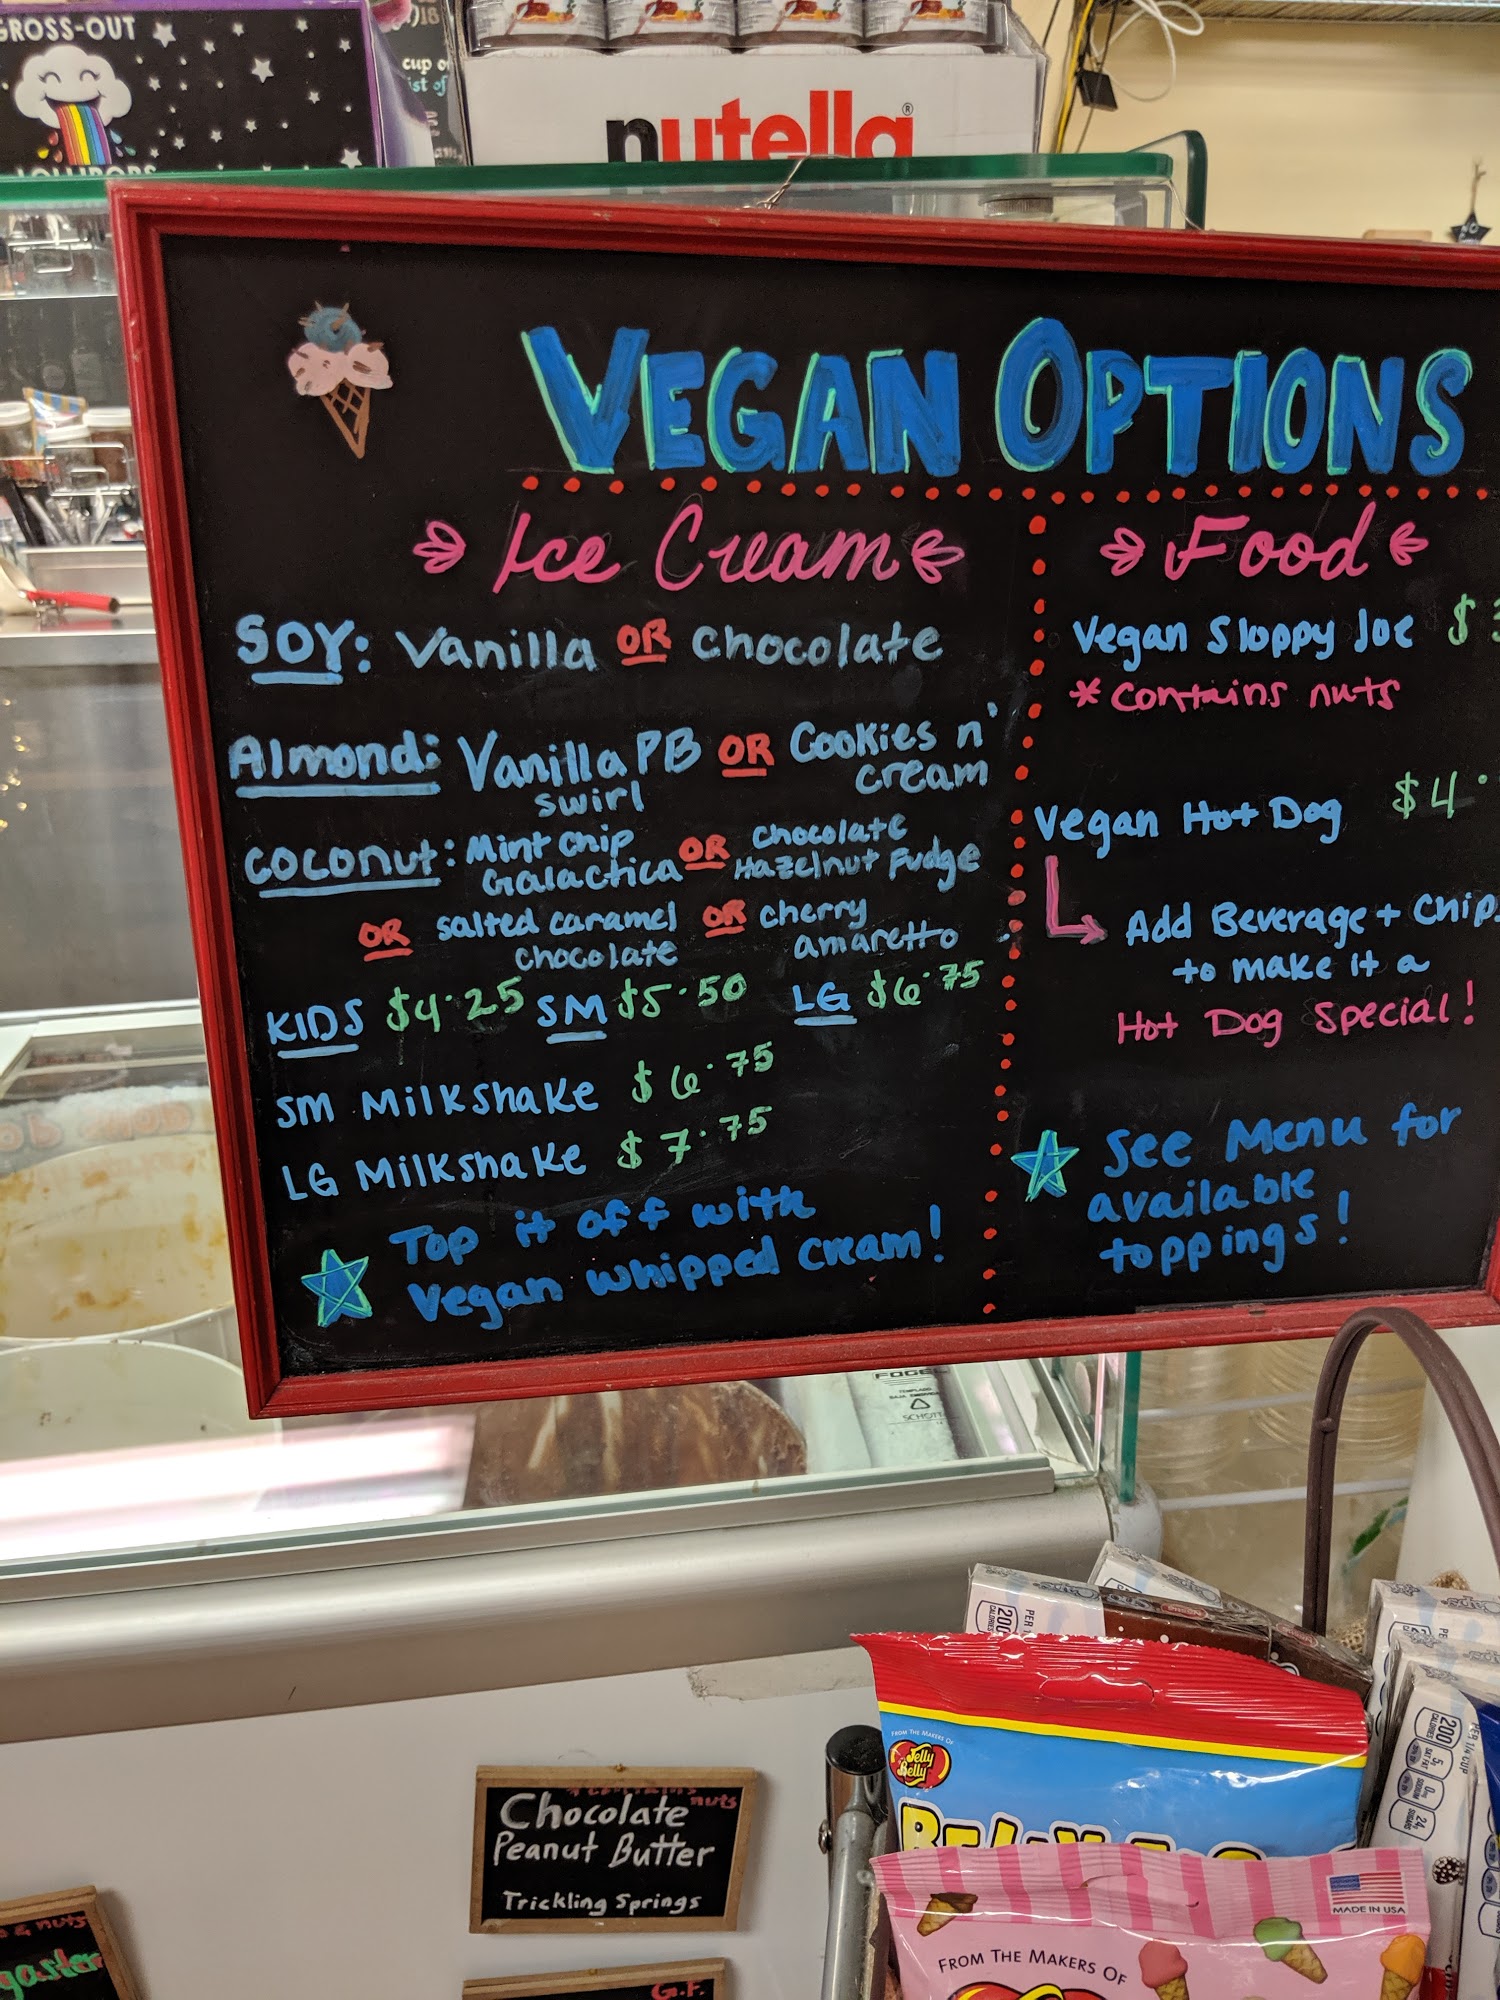 GROSS-OUT
LOLLIPOPS
cup
ist of
nutella®
VEGAN OPTIONS
Ice Cream
SOY: Vanilla OR Chocolate
Almond: Vanilla PB OR Cookies n'
swirl cream
Coconut: Mint Chip OR Chocolate
Galactica Hazelnut Fudge
OR salted caramel OR cherry
chocolate amaretto
KIDS $4.25 SM $5.50 LG $6.75
SM Milkshake $6.75
LG Milkshake $7.75
Top it off with
Vegan whipped cream!
Food
Vegan Sloppy Joe $3
*contains nuts
Vegan Hot Dog $4.
Add Beverage + Chip
to make it a
Hot Dog Special!
See Menu for
available
toppings!
FOGEL
SCHOTT
*contains
nuts
Chocolate
Peanut Butter
Trickling Springs
& nuts
G.F.
FROM THE MAKERS OF
Jelly
Belly
MADE IN USA
FROM THE MAKERS OF
PER 1/4 CUP
200
CALORIES
5g
SAT FAT
SODIUM
24g
SUGARS
PER
200
CALORIES